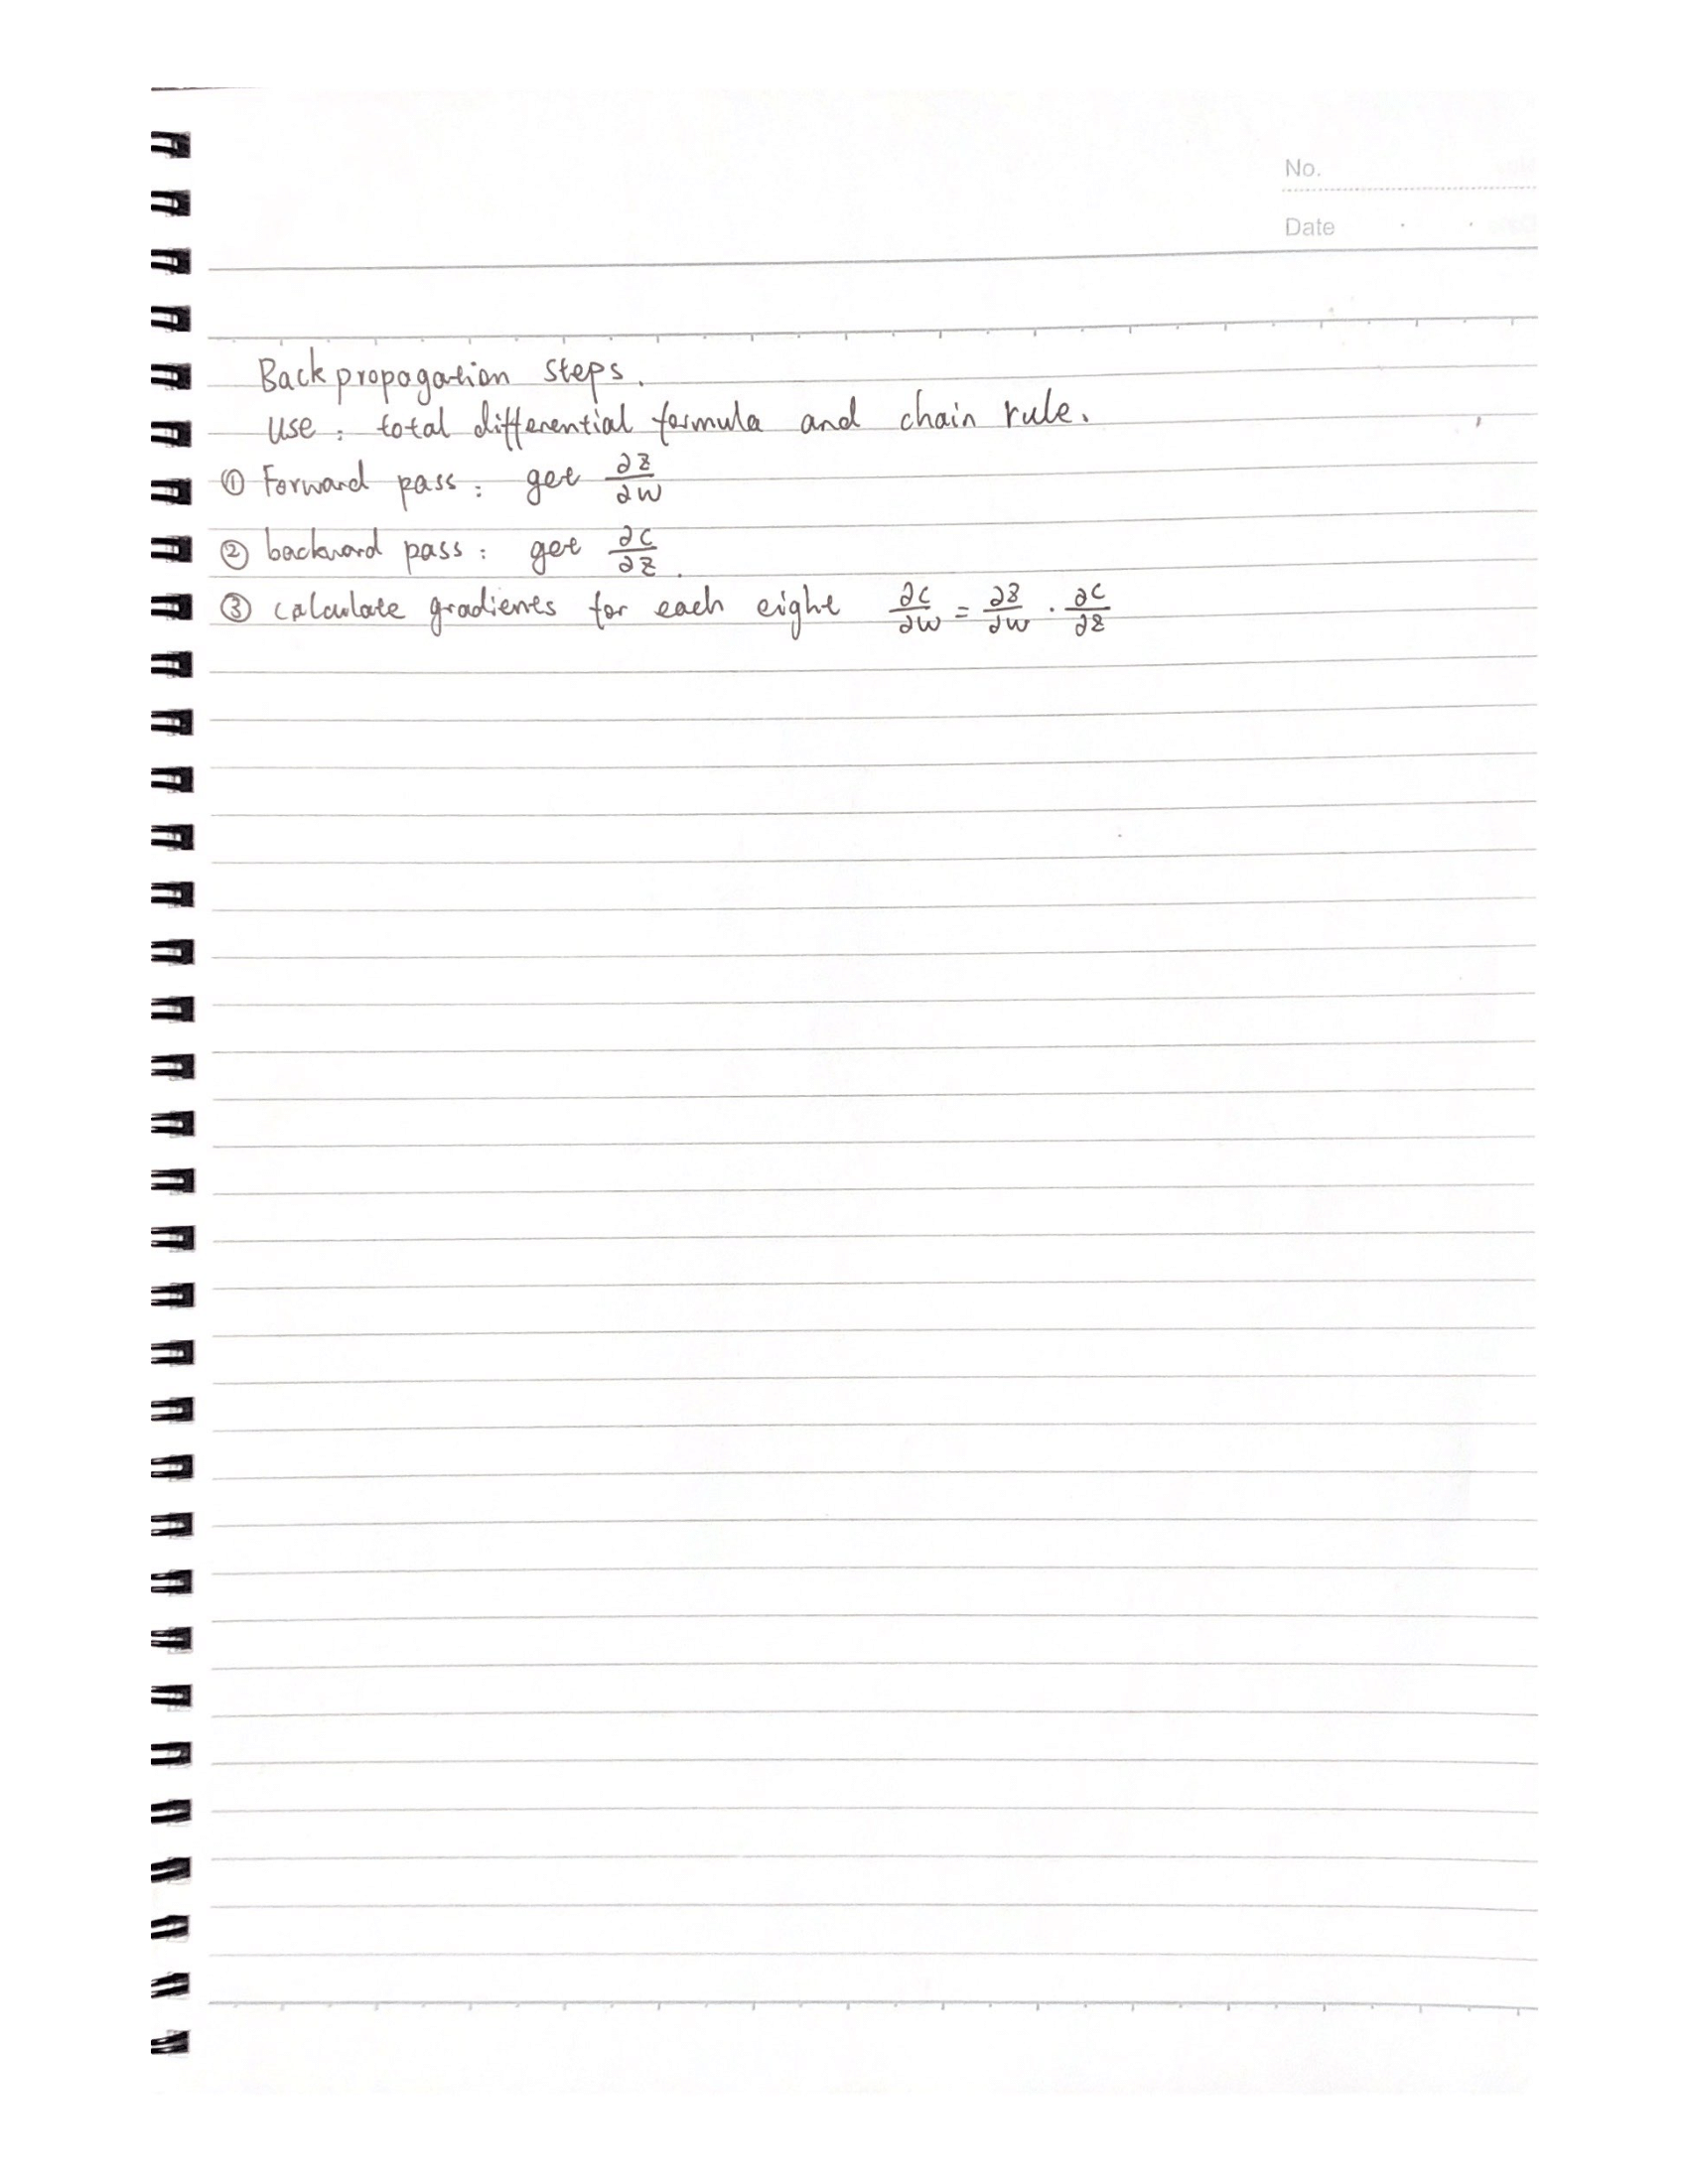 No.
Date
Backpropagation steps.
Use: total differential formula and chain rule.
① Forward pass: get ∂z/∂w
② backward pass: get ∂C/∂z.
③ calculate gradients for each eight ∂C/∂w = ∂z/∂w · ∂C/∂z